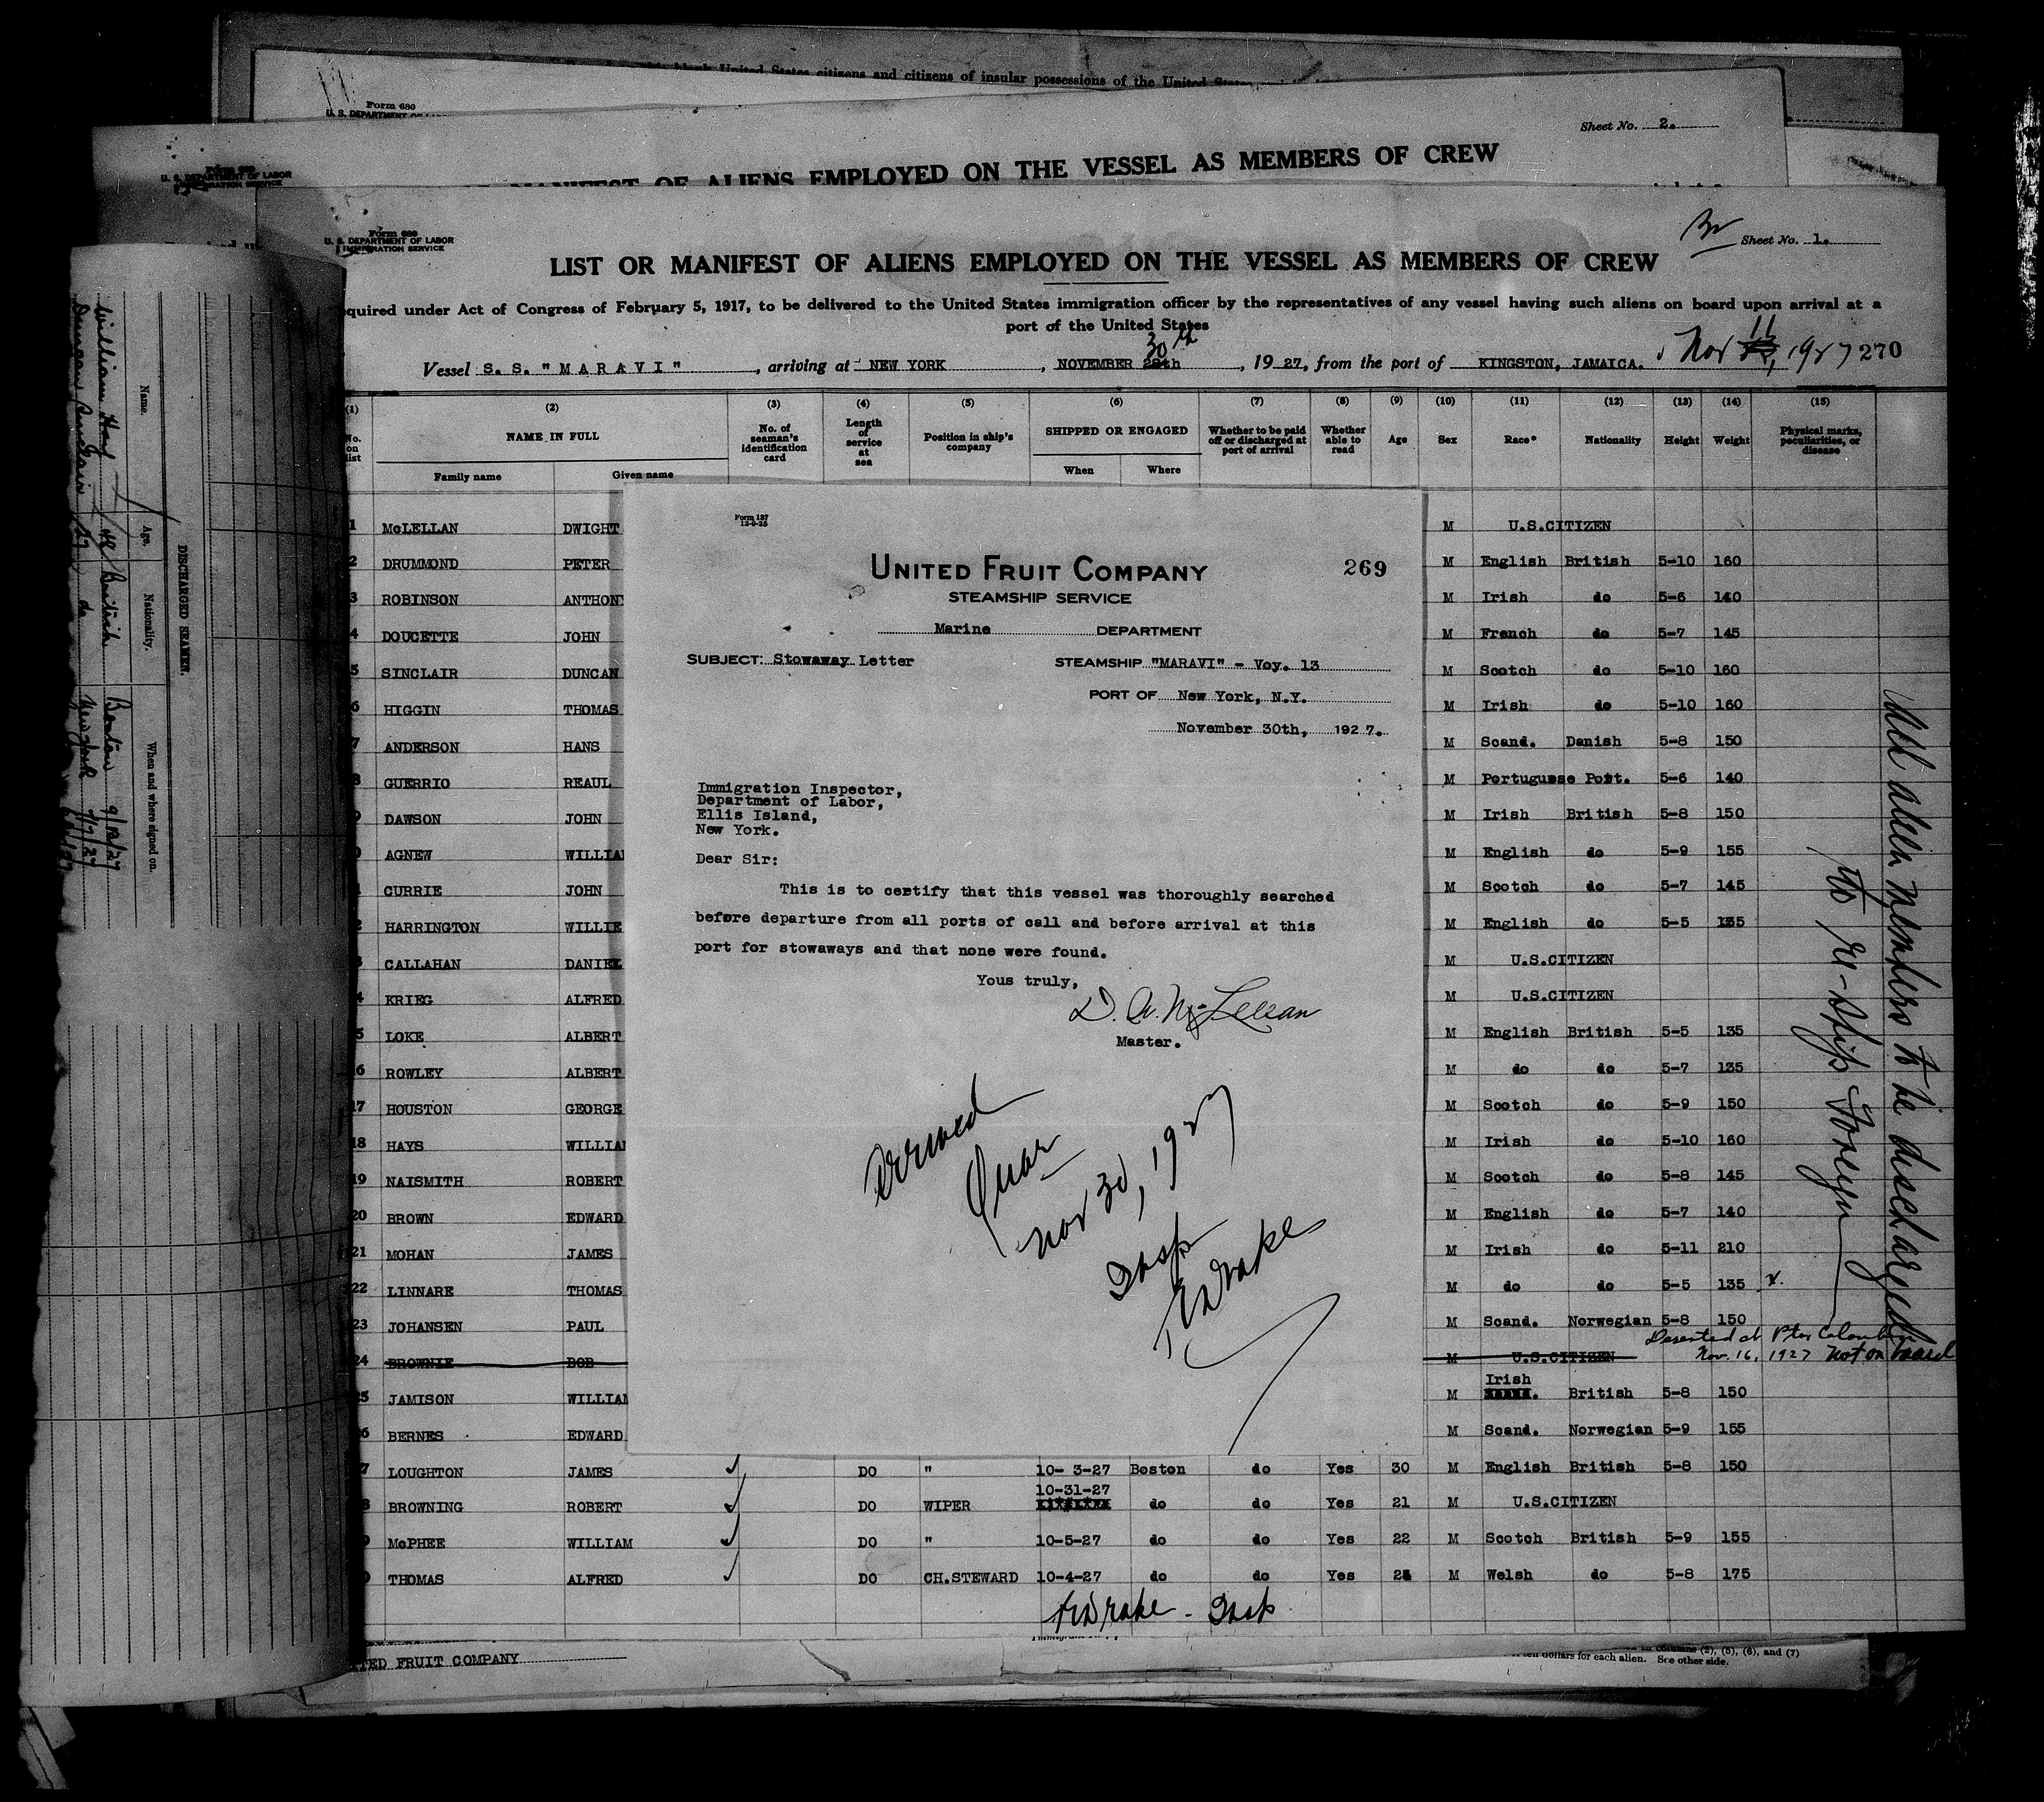 possessions of the United States
citizens and citizens of insular
Form 680
U. S. DEPARTMENT OF LABOR
Sheet No. 2.
MANIFEST OF ALIENS EMPLOYED ON THE VESSEL AS MEMBERS OF CREW
Form 680
U. S. DEPARTMENT OF LABOR
IMMIGRATION SERVICE
Form 680
U. S. DEPARTMENT OF LABOR
IMMIGRATION SERVICE
Sheet No. 1.
LIST OR MANIFEST OF ALIENS EMPLOYED ON THE VESSEL AS MEMBERS OF CREW
quired under Act of Congress of February 5, 1917, to be delivered to the United States immigration officer by the representatives of any vessel having such aliens on board upon arrival at a
port of the United States
Vessel S. S. "MARAVI", arriving at NEW YORK, NOVEMBER 30th, 1927, from the port of KINGSTON, JAMAICA. Nov 11, 1927 270
(1) (2) (3) (4) (5) (6) (7) (8) (9) (10) (11) (12) (13) (14) (15)
No. on list NAME IN FULL No. of seaman's identification card Length of service at sea Position in ship's company SHIPPED OR ENGAGED Whether to be paid off or discharged at port of arrival Whether able to read Age Sex Race* Nationality Height Weight Physical marks, peculiarities, or disease
Family name Given name When Where
1 McLELLAN DWIGHT M U.S.CITIZEN
2 DRUMMOND PETER M English British 5-10 160
3 ROBINSON ANTHONY M Irish do 5-6 140
4 DOUCETTE JOHN M French do 5-7 145
5 SINCLAIR DUNCAN M Scotch do 5-10 160
6 HIGGIN THOMAS M Irish do 5-10 160
7 ANDERSON HANS M Scand. Danish 5-8 150
8 GUERRIO REAUL M Portuguese Port. 5-6 140
9 DAWSON JOHN M Irish British 5-8 150
0 AGNEW WILLIA M English do 5-9 155
1 CURRIE JOHN M Scotch do 5-7 145
2 HARRINGTON WILLIE M English do 5-5 135
3 CALLAHAN DANIEL M U.S.CITIZEN
4 KRIEG ALFRED M U.S.CITIZEN
5 LOKE ALBERT M English British 5-5 135
6 ROWLEY ALBERT M do do 5-7 135
17 HOUSTON GEORGE M Scotch do 5-9 150
18 HAYS WILLIA M Irish do 5-10 160
19 NAISMITH ROBERT M Scotch do 5-8 145
20 BROWN EDWARD M English do 5-7 140
21 MOHAN JAMES M Irish do 5-11 210
22 LINNARE THOMAS M do do 5-5 135
23 JOHANSEN PAUL M Scand. Norwegian 5-8 150
24 BROWNIE BOB M U.S.CITIZEN Deserted at Pto Colombia Nov. 16, 1927 Not on board
25 JAMISON WILLIA M Irish British 5-8 150
6 BERNES EDWARD M Scand. Norwegian 5-9 155
7 LOUGHTON JAMES ✓ DO " 10-3-27 Boston do Yes 30 M English British 5-8 150
8 BROWNING ROBERT ✓ DO WIPER 10-31-27 do do Yes 21 M U.S.CITIZEN
9 McPHEE WILLIAM ✓ DO " 10-5-27 do do Yes 22 M Scotch British 5-9 155
0 THOMAS ALFRED ✓ DO CH.STEWARD 10-4-27 do do Yes M Welsh do 5-8 175
Drake - Insp
All alien members to be discharged
to re-ship Foreign
Form 127
12-9-25
UNITED FRUIT COMPANY
269
STEAMSHIP SERVICE
Marine DEPARTMENT
SUBJECT: Stowaway Letter
STEAMSHIP "MARAVI" - Voy. 13
PORT OF New York, N.Y.
November 30th, 1927.
Immigration Inspector,
Department of Labor,
Ellis Island,
New York.
Dear Sir:
This is to certify that this vessel was thoroughly searched
before departure from all ports of call and before arrival at this
port for stowaways and that none were found.
Yous truly,
D. A. McLellan
Master.
Arrived
Quar
Nov 30, 1927
Insp
Drake
DISCHARGED SEAMEN.
Name. Age. Nationality. When and where signed on.
William Hay British Boston 9/12/27
Duncan Sinclair 27 do New York
TED FRUIT COMPANY
columns (2), (5), (6), and (7)
ten dollars for each alien. See other side.